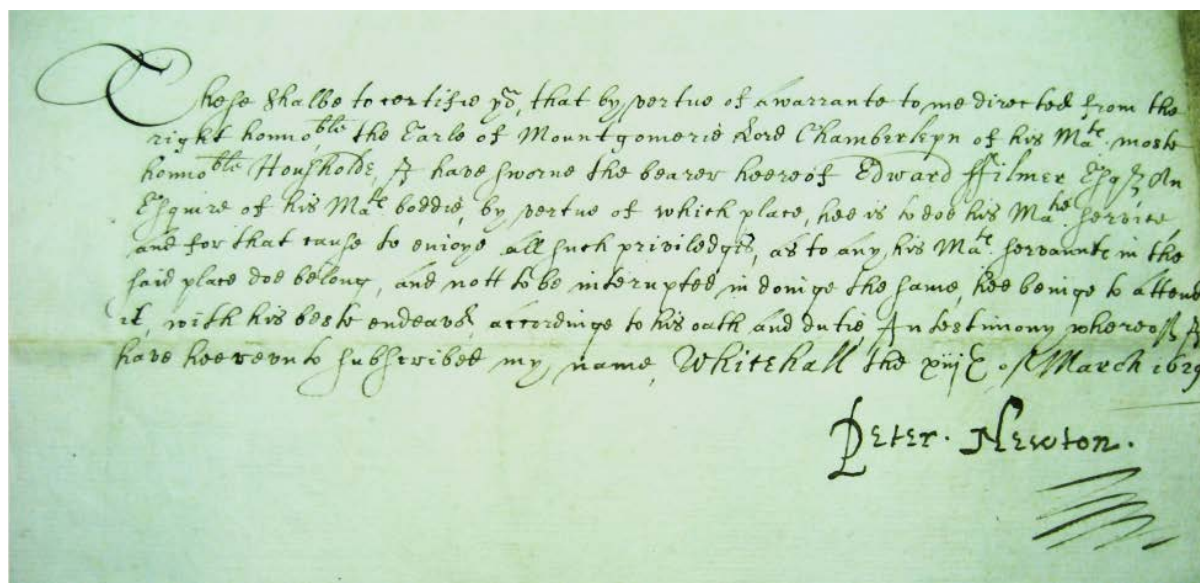 These shalbe to certifie yo, that by vertue of a warrante to me directed from the
right honno:ble the Earle of Mountgomerie Lord Chamberleyn of his Ma:te moste
honno:ble Housholde, I have sworne the bearer heereof Edward Ffilmer Esqr, An
Esquire of his Ma:te boddie, by vertue of which place, hee is to doe his Ma:te service,
and for that cause to enioye all such priviledges, as to any his Ma:te servaunte in the
said place doe belong, and nott to be interupted in doinge the same, hee beinge to attend
it, with his beste endeavor, accordinge to his oath and dutie, In testimony whereoff I
have heerevnto subscribed my name, Whitehall the xiijth of March 1629
Peter. Newton.